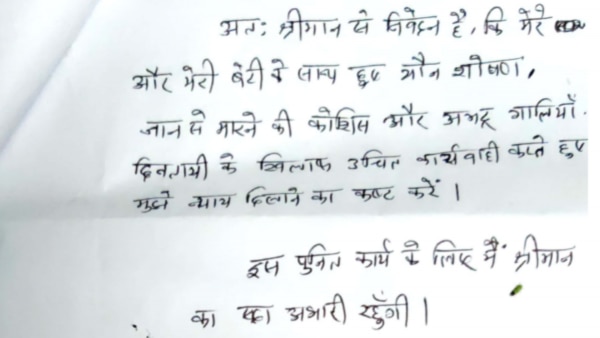 अतः श्रीमान से निवेदन है, कि मेरे
और मेरी बेटी के साथ हुए यौन शोषण,
जान से मारने की कोशिस और अभद्र गालियाँ.
के खिलाफ उचित कार्यवाही करते हुए
मुझे न्याय दिलाने का कष्ट करें ।
इस पुनित कार्य के लिए मैं श्रीमान
का सदा अभारी रहूँगी ।